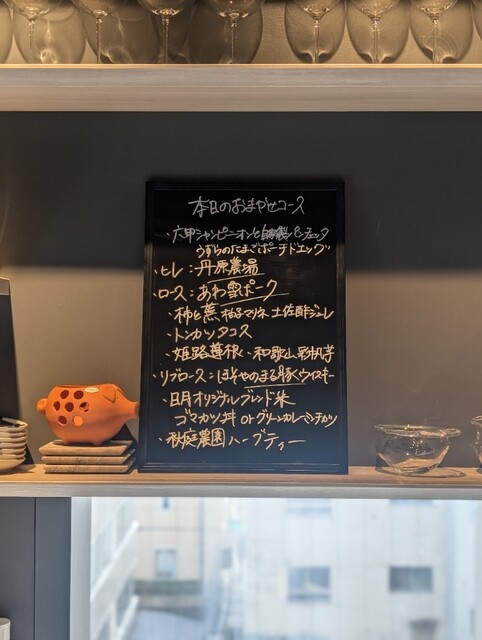 本日のおまかせコース
・六甲シャンピニオンと自家製パンチェッタ
うずらのたまごポーチドエッグ
・ヒレ：丹原農場
・ロース：あわ雪ポーク
・柿と蕪 柚子マリネ 土佐酢ジュレ
・トンカツタコス
・姫路蓮根・和歌山彩帆芋
・リブロース：ほそやのまる豚〈ウイスキー
・日月オリジナルブレンド米
ゴマカツ丼 or グリーンカレーミンチカツ
・秋庭農園ハーブティー